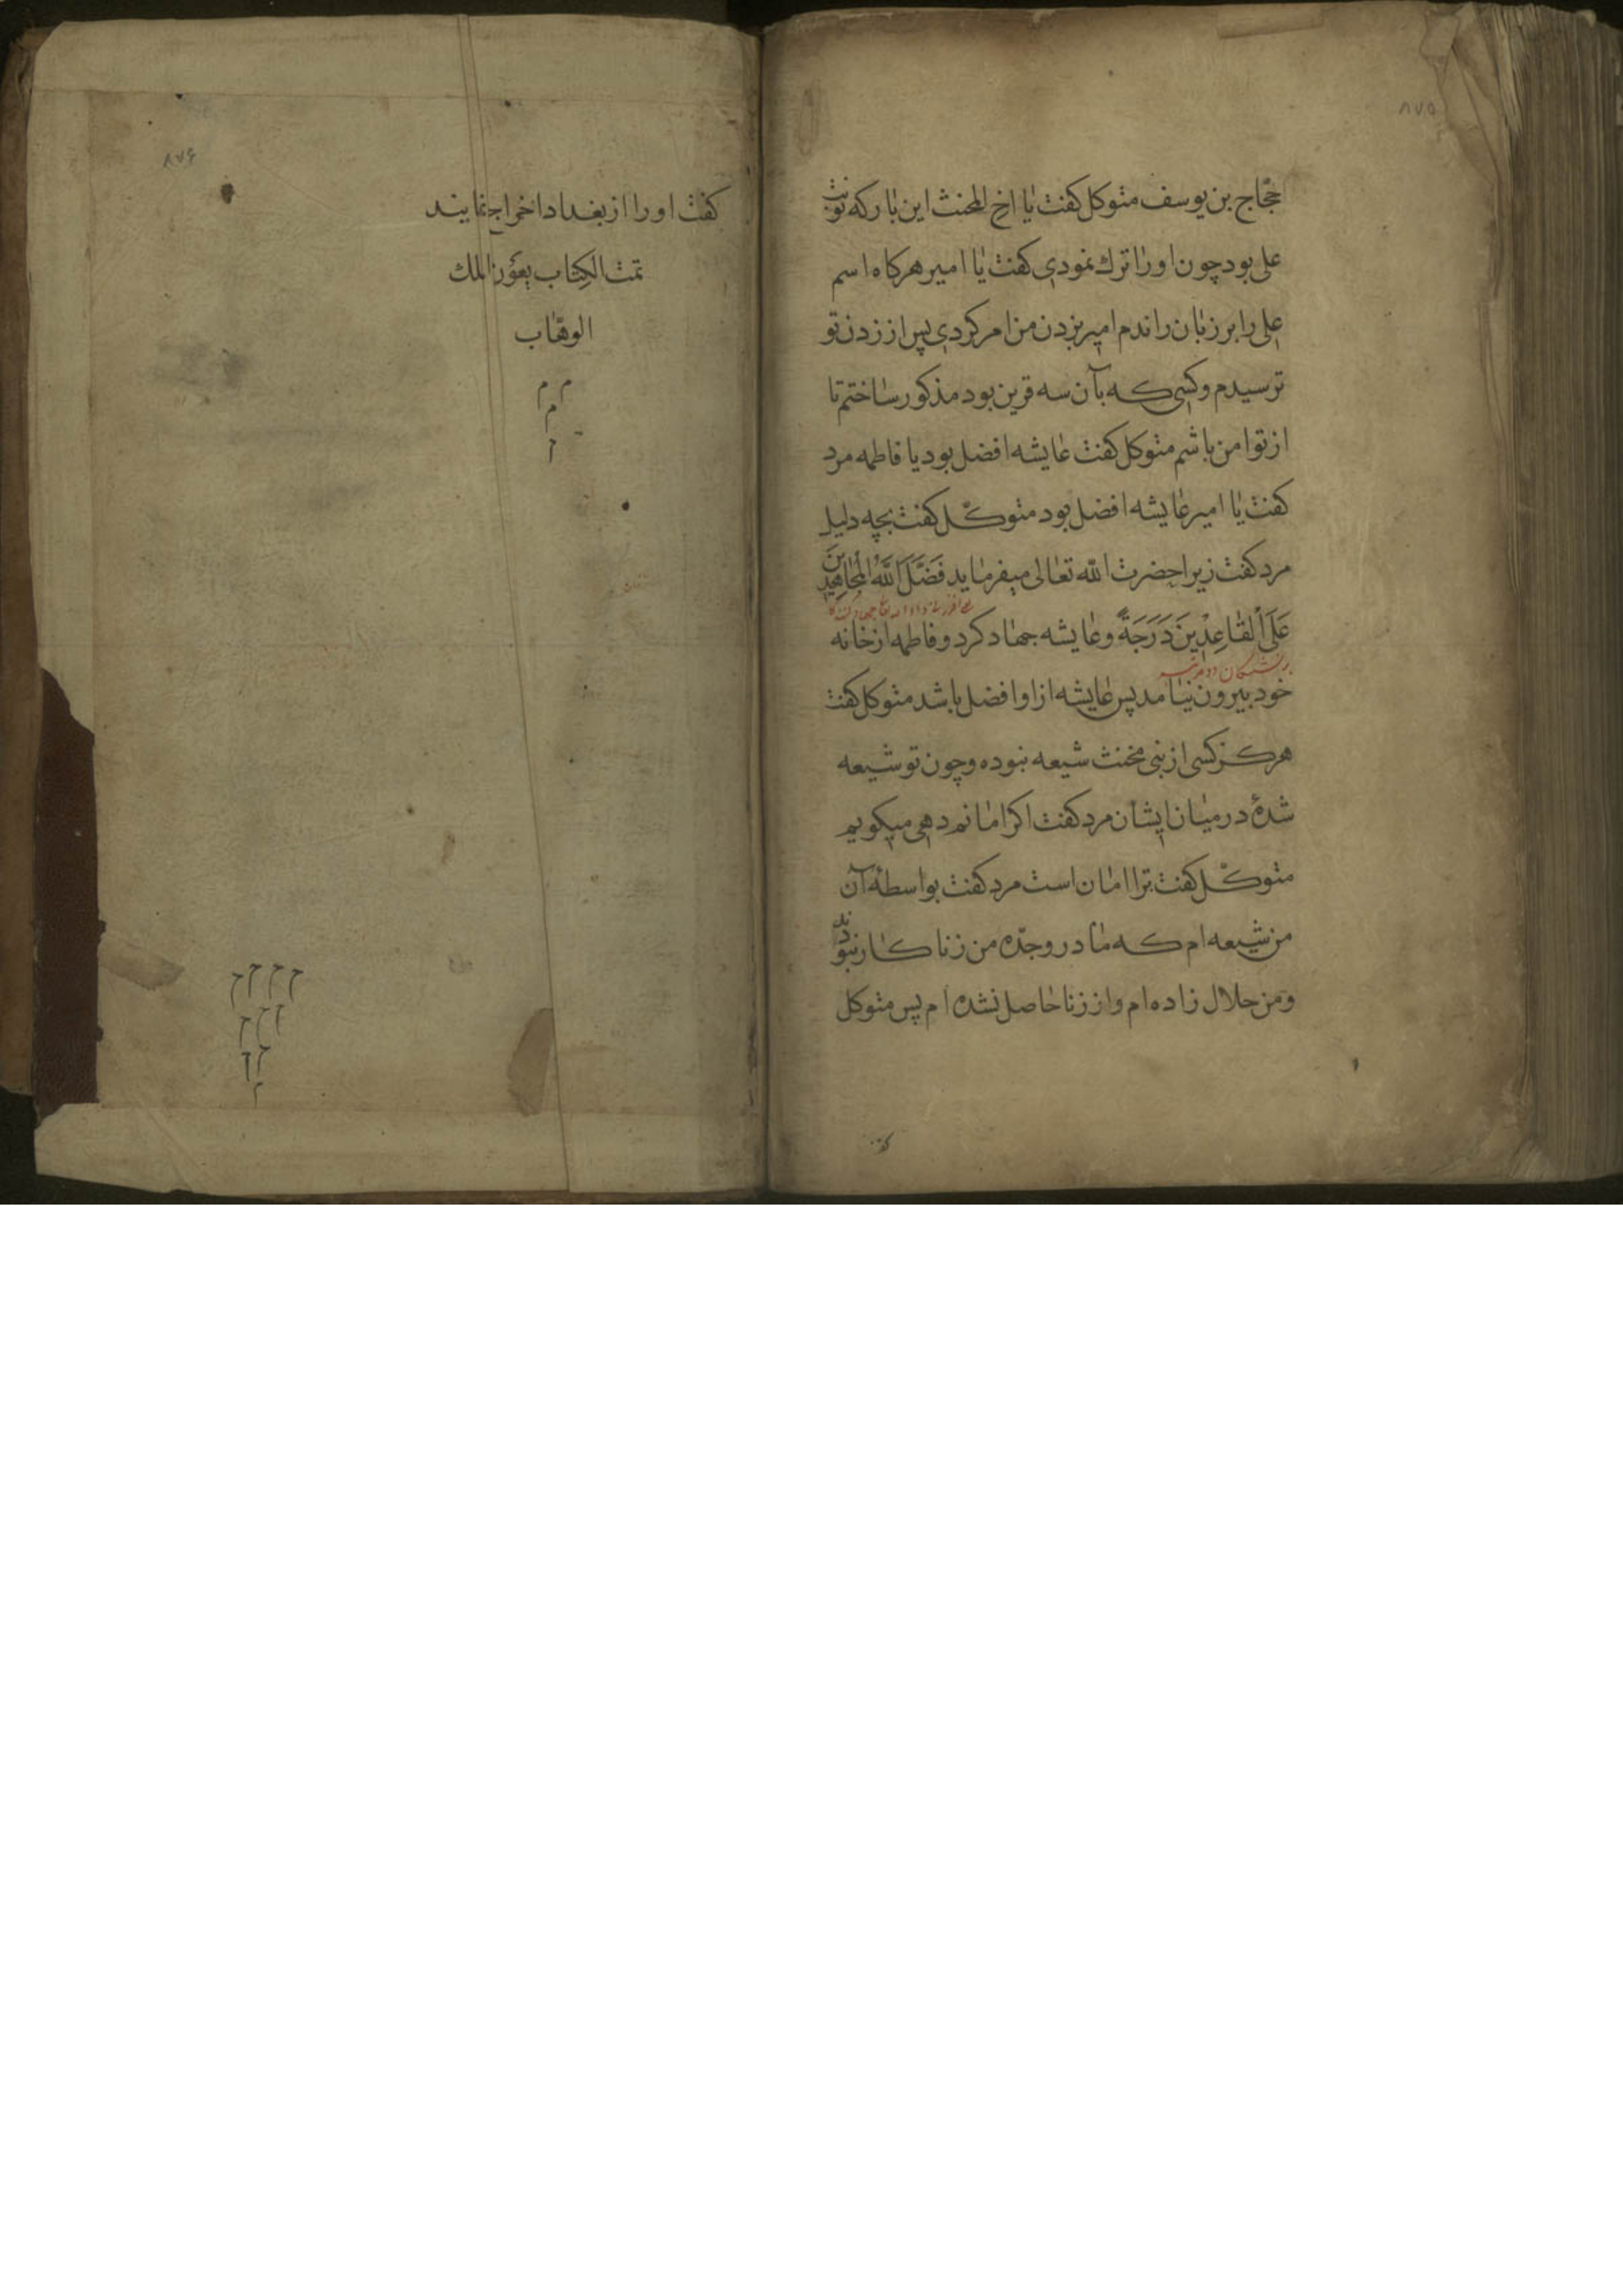 ٨٧٥
حجّاج بن يوسف متوكل كفت يا اخ المخنث اين بار كه نوبت
على بود چون او را ترك نمودى كفت يا امير هركاه اسم
على را بر زبان راندم امير بزدن من امر كردى پس از زدن تو
ترسيدم و كسى كه بآن سه قرين بود مذكور ساختم تا
از تو امن باشم متوكل كفت عايشه افضل بود يا فاطمه مرد
كفت يا امير عايشه افضل بود متوكّل كفت بچه دليل
مرد كفت زيرا حضرت اللّه تعالى ميفرمايد فَضَّلَ اللَّهُ الْمُجَاهِدِينَ
عَلَى الْقَاعِدِينَ دَرَجَةً و عايشه جهاد كرد و فاطمه از خانه
بر نشستكان دو مرتبه
خود بيرون نيامد پس عايشه از او افضل باشد متوكل كفت
هركز كسى از بنى مخنث شيعه نبوده و چون تو شيعه
شدهٔ در ميان ايشان مرد كفت اكر امانم دهى ميكويم
متوكّل كفت ترا امان است مرد كفت بواسطهٔ آن
من شيعه ام كه مادر و جدّه من زنا كار نبودند
و من حلال زاده ام و از زنا حاصل نشده ام پس متوكل
٨٧۶
كفت او را از بغداد اخراج نمايند
تمت الكِتاب بِعَوْن الملك
الوهّاب
م م
م